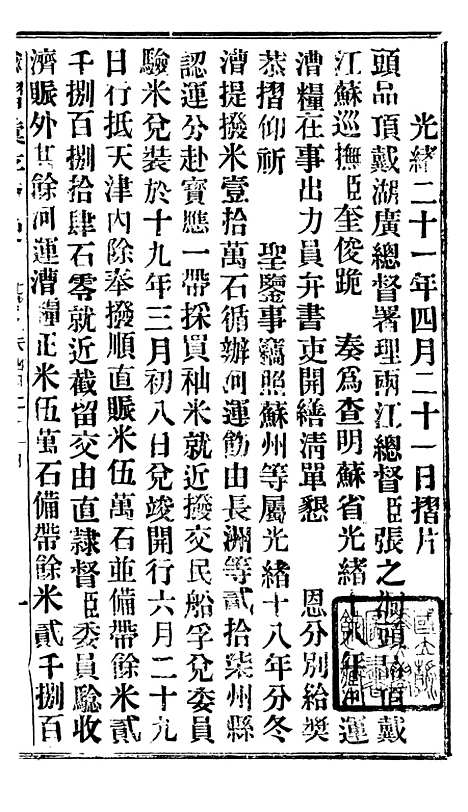 光緒二十一年四月二十一日摺片
頭品頂戴湖廣總督署理兩江總督臣張之洞頭品頂戴
江蘇巡撫臣奎俊跪　奏爲查明蘇省光緒十八年運
漕糧在事出力員弁書吏開繕清單懇　恩分別給獎
恭摺仰祈　聖鑒事竊照蘇州等屬光緒十八年分冬
漕提撥米壹拾萬石循辦河運飭由長洲等貳拾柒州縣
認運分赴寶應一帶採買秈米就近撥交民船孚兌委員
驗米兌裝於十九年三月初八日兌竣開行六月二十九
日行抵天津內除奉撥順直賑米伍萬石並備帶餘米貳
千捌百捌拾肆石零就近截留交由直隸督臣委員驗收
濟賑外其餘河運漕糧正米伍萬石備帶餘米貳千捌百